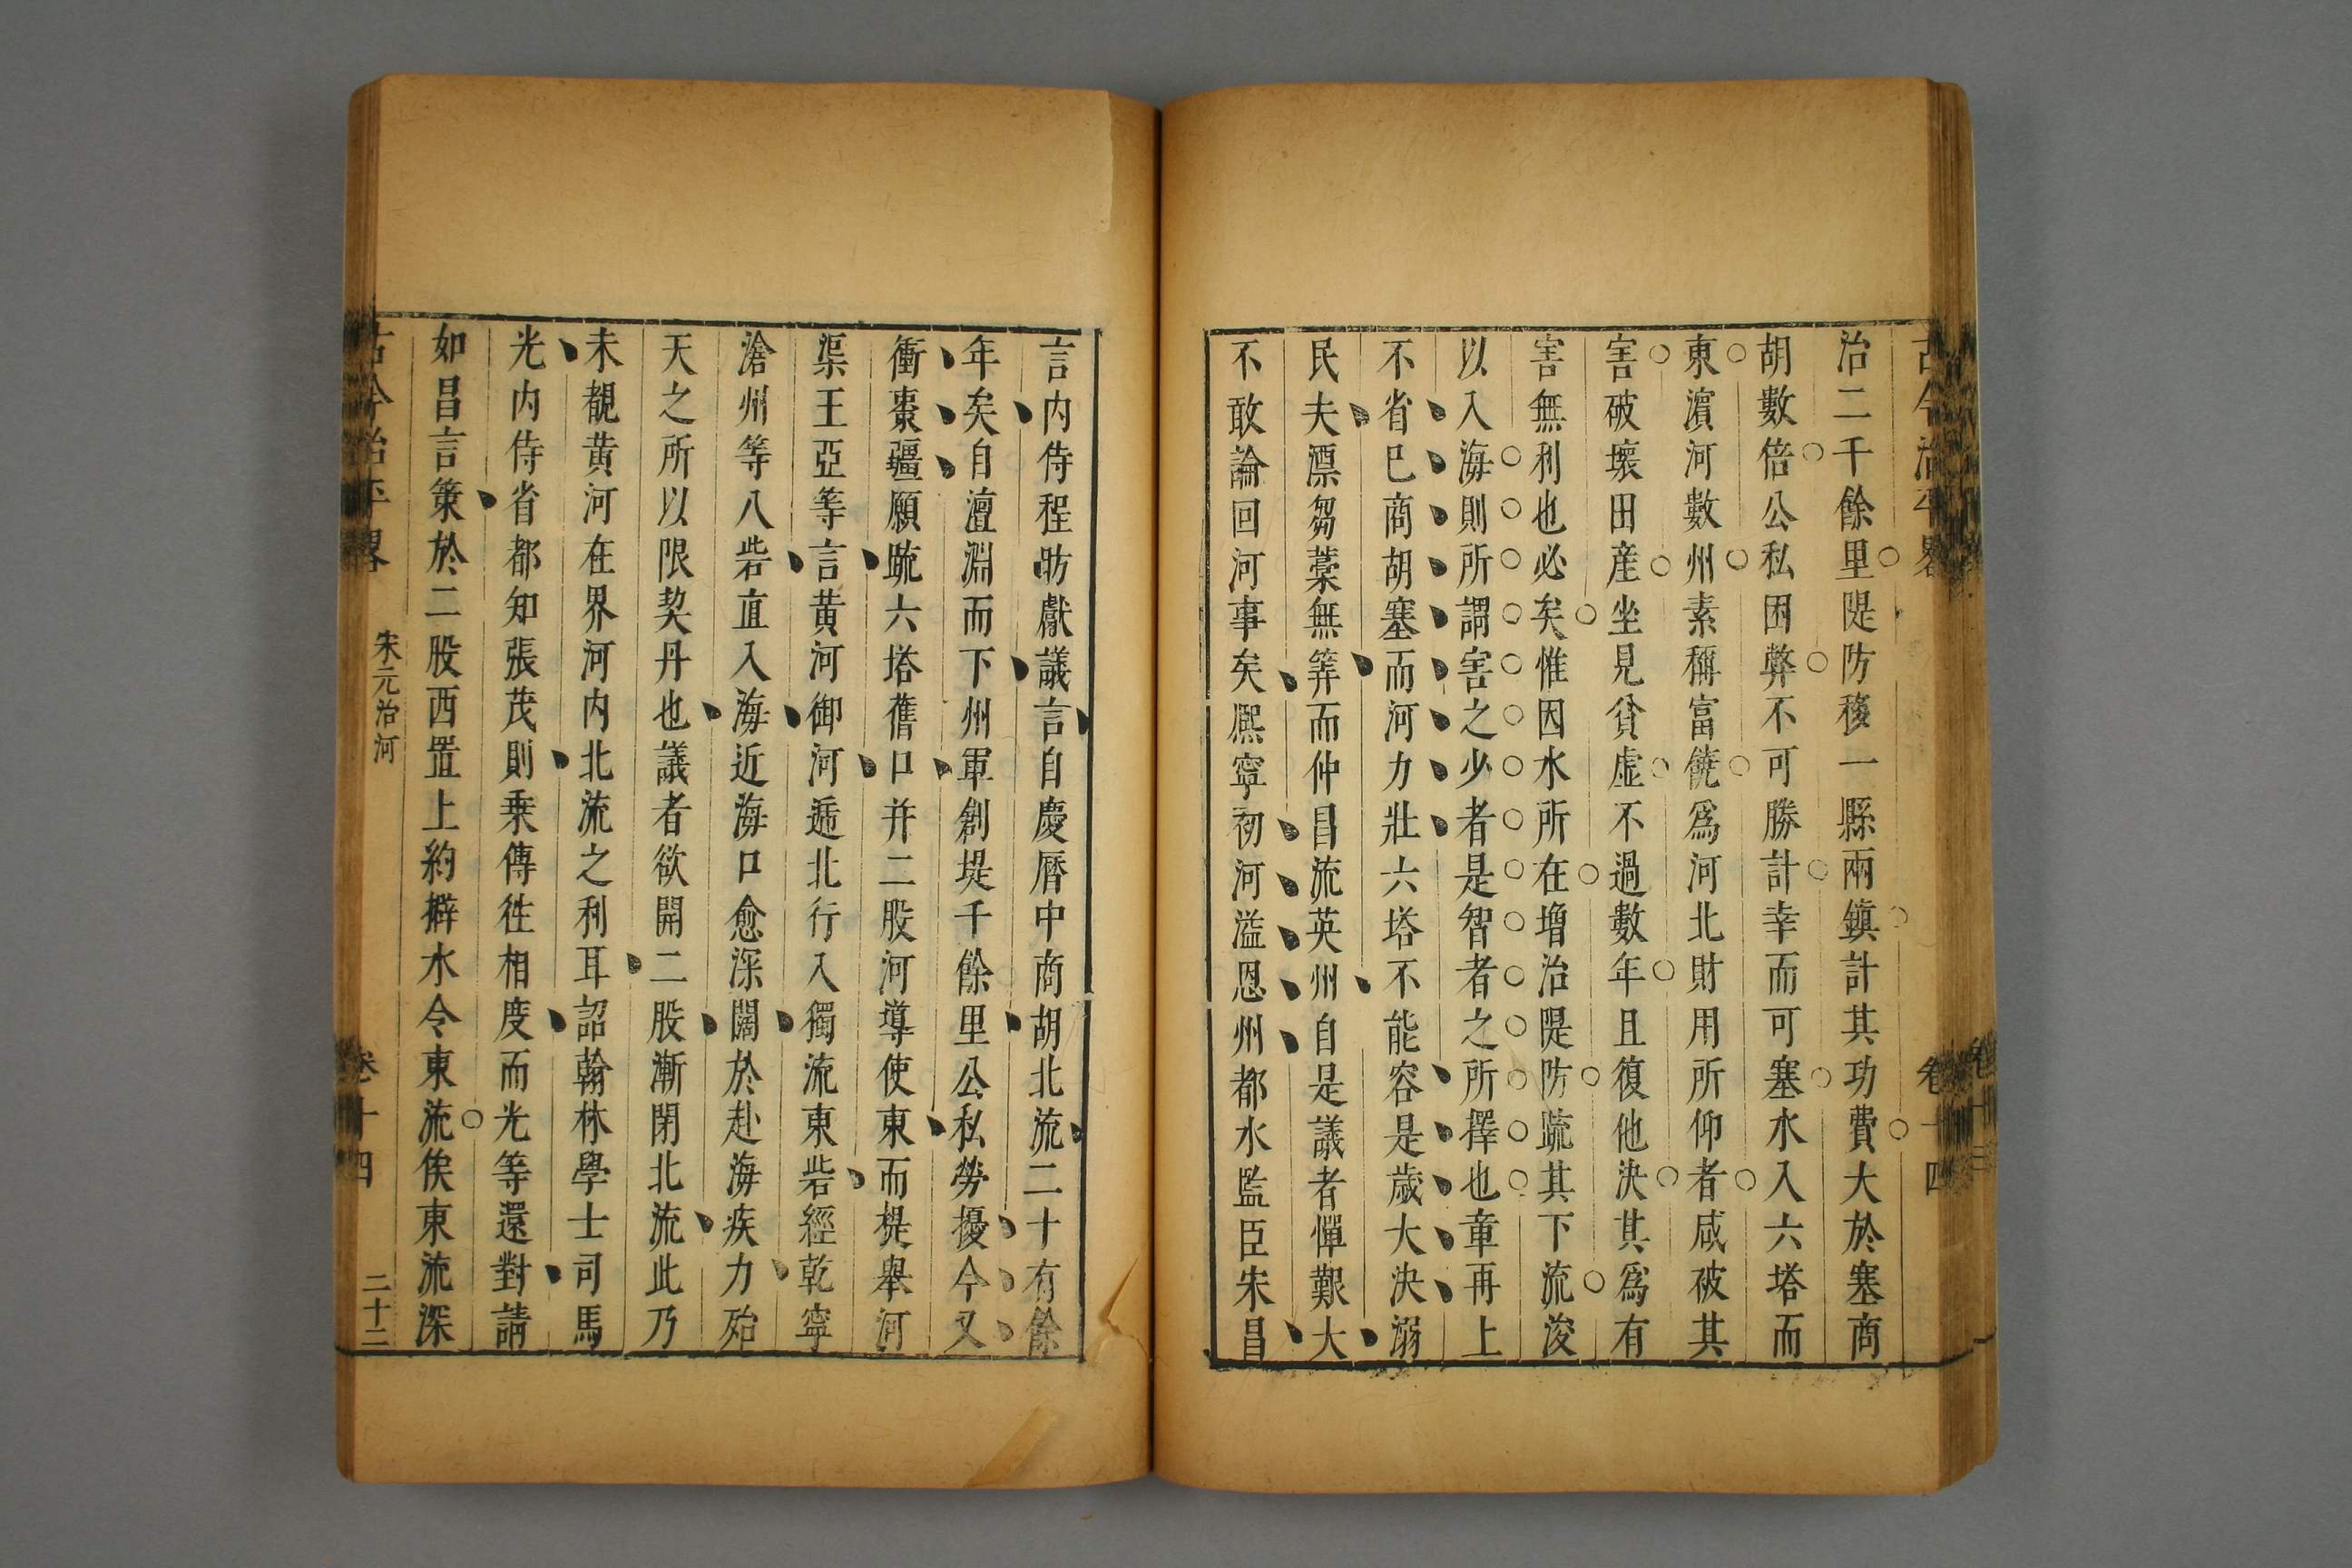 古今治平畧 卷十四
治二千餘里隄防移一縣兩鎮計其功費大於塞商
胡數倍公私困弊不可勝計幸而可塞水入六塔而
東濵河數州素稱富饒爲河北財用所仰者咸被其
害破壞田産坐見貧虛不過數年且復他決其爲有
害無利也必矣惟因水所在增治隄防䟽其下流浚
以入海則所謂害之少者是智者之所擇也章再上
不省巳商胡塞而河力壯六塔不能容是歲大決溺
民夫漂芻藁無筭而仲昌流英州自是議者憚艱大
不敢論回河事矣熈寧初河溢恩州都水監臣宋昌
言内侍程昉獻議言自慶曆中商胡北流二十有餘
年矣自澶淵而下州軍創堤千餘里公私勞擾今又
衝棗彊願䟽六塔舊口并二股河導使東而提舉河
渠王亞等言黄河御河遞北行入獨流東砦經乾寧
滄州等八砦直入海海近海口愈深闊於赴海疾力殆
天之所以限契丹也議者欲開二股漸閉北流此乃
未覩黄河在界河内北流之利耳詔翰林學士司馬
光内侍省都知張茂則乗傳徃相度而光等還對請
如昌言策於二股西置上約擗水令東流俟東流深
古今治平畧 宋元治河 卷十四 二十二